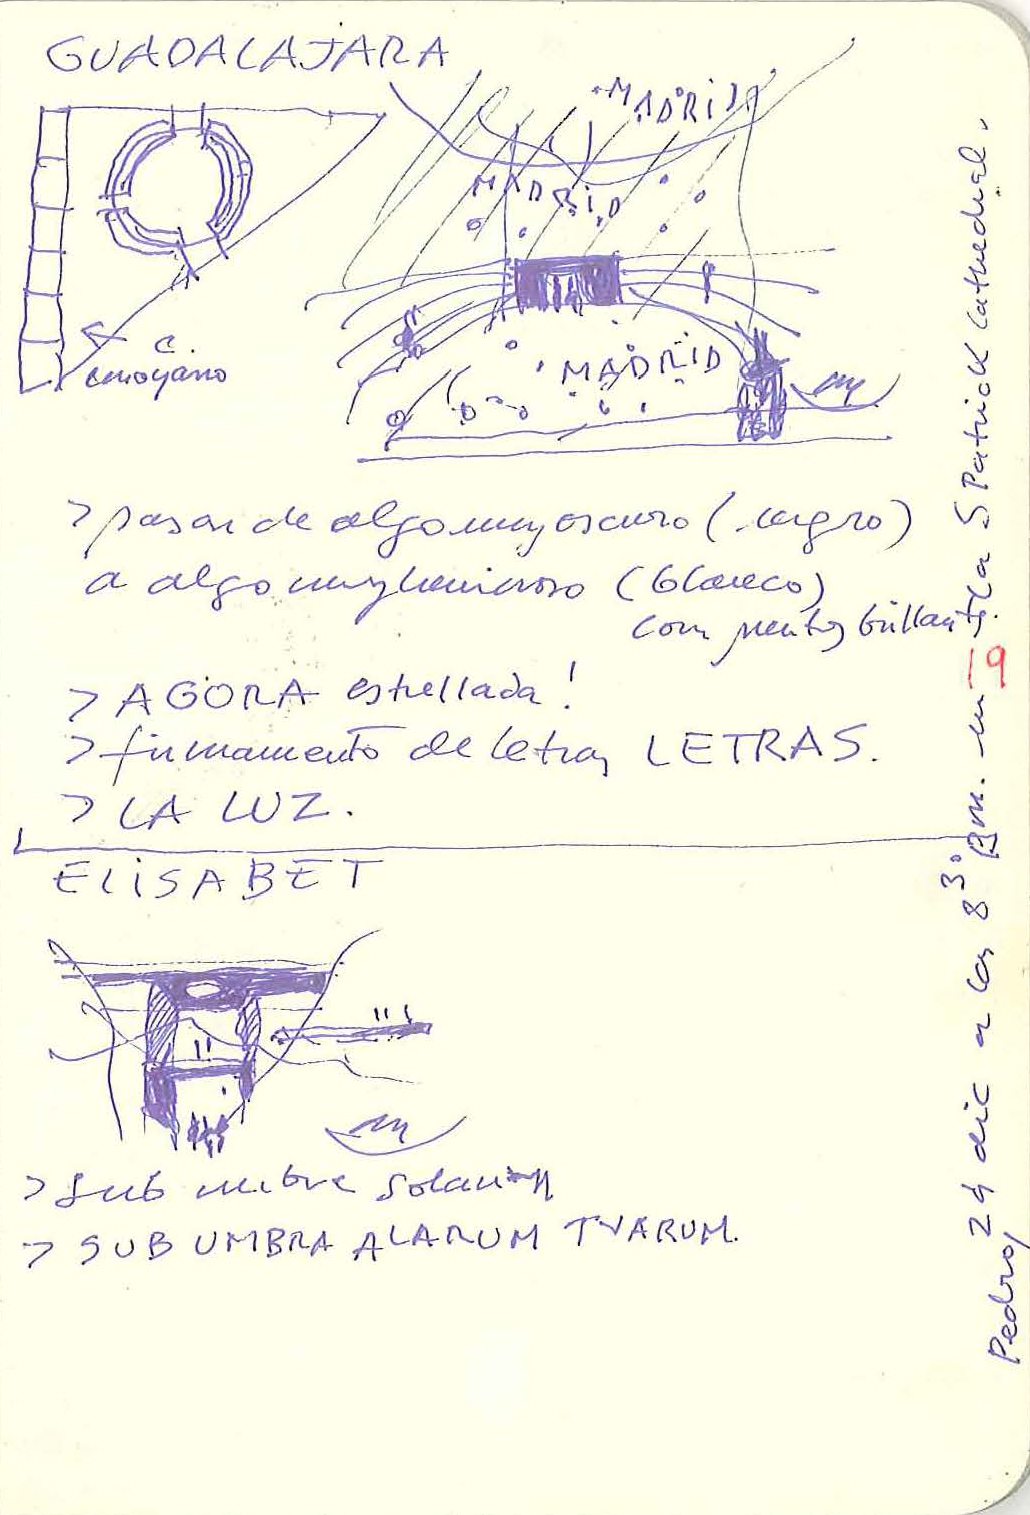 GUADALAJARA
MADRID
MADRID
MADRID
C.
> pasar de algo muy oscuro (negro)
a algo muy luminoso (blanco)
con puntos brillantes.
> AGORA estrellada!
> firmamento de letras LETRAS.
> LA LUZ.
ELISABET
> Sub
> SUB UMBRA ALARUM TVARUM.
Pedro, 24 dic a las 8³⁰ Pm. en la S Patrick Cathedral.
19